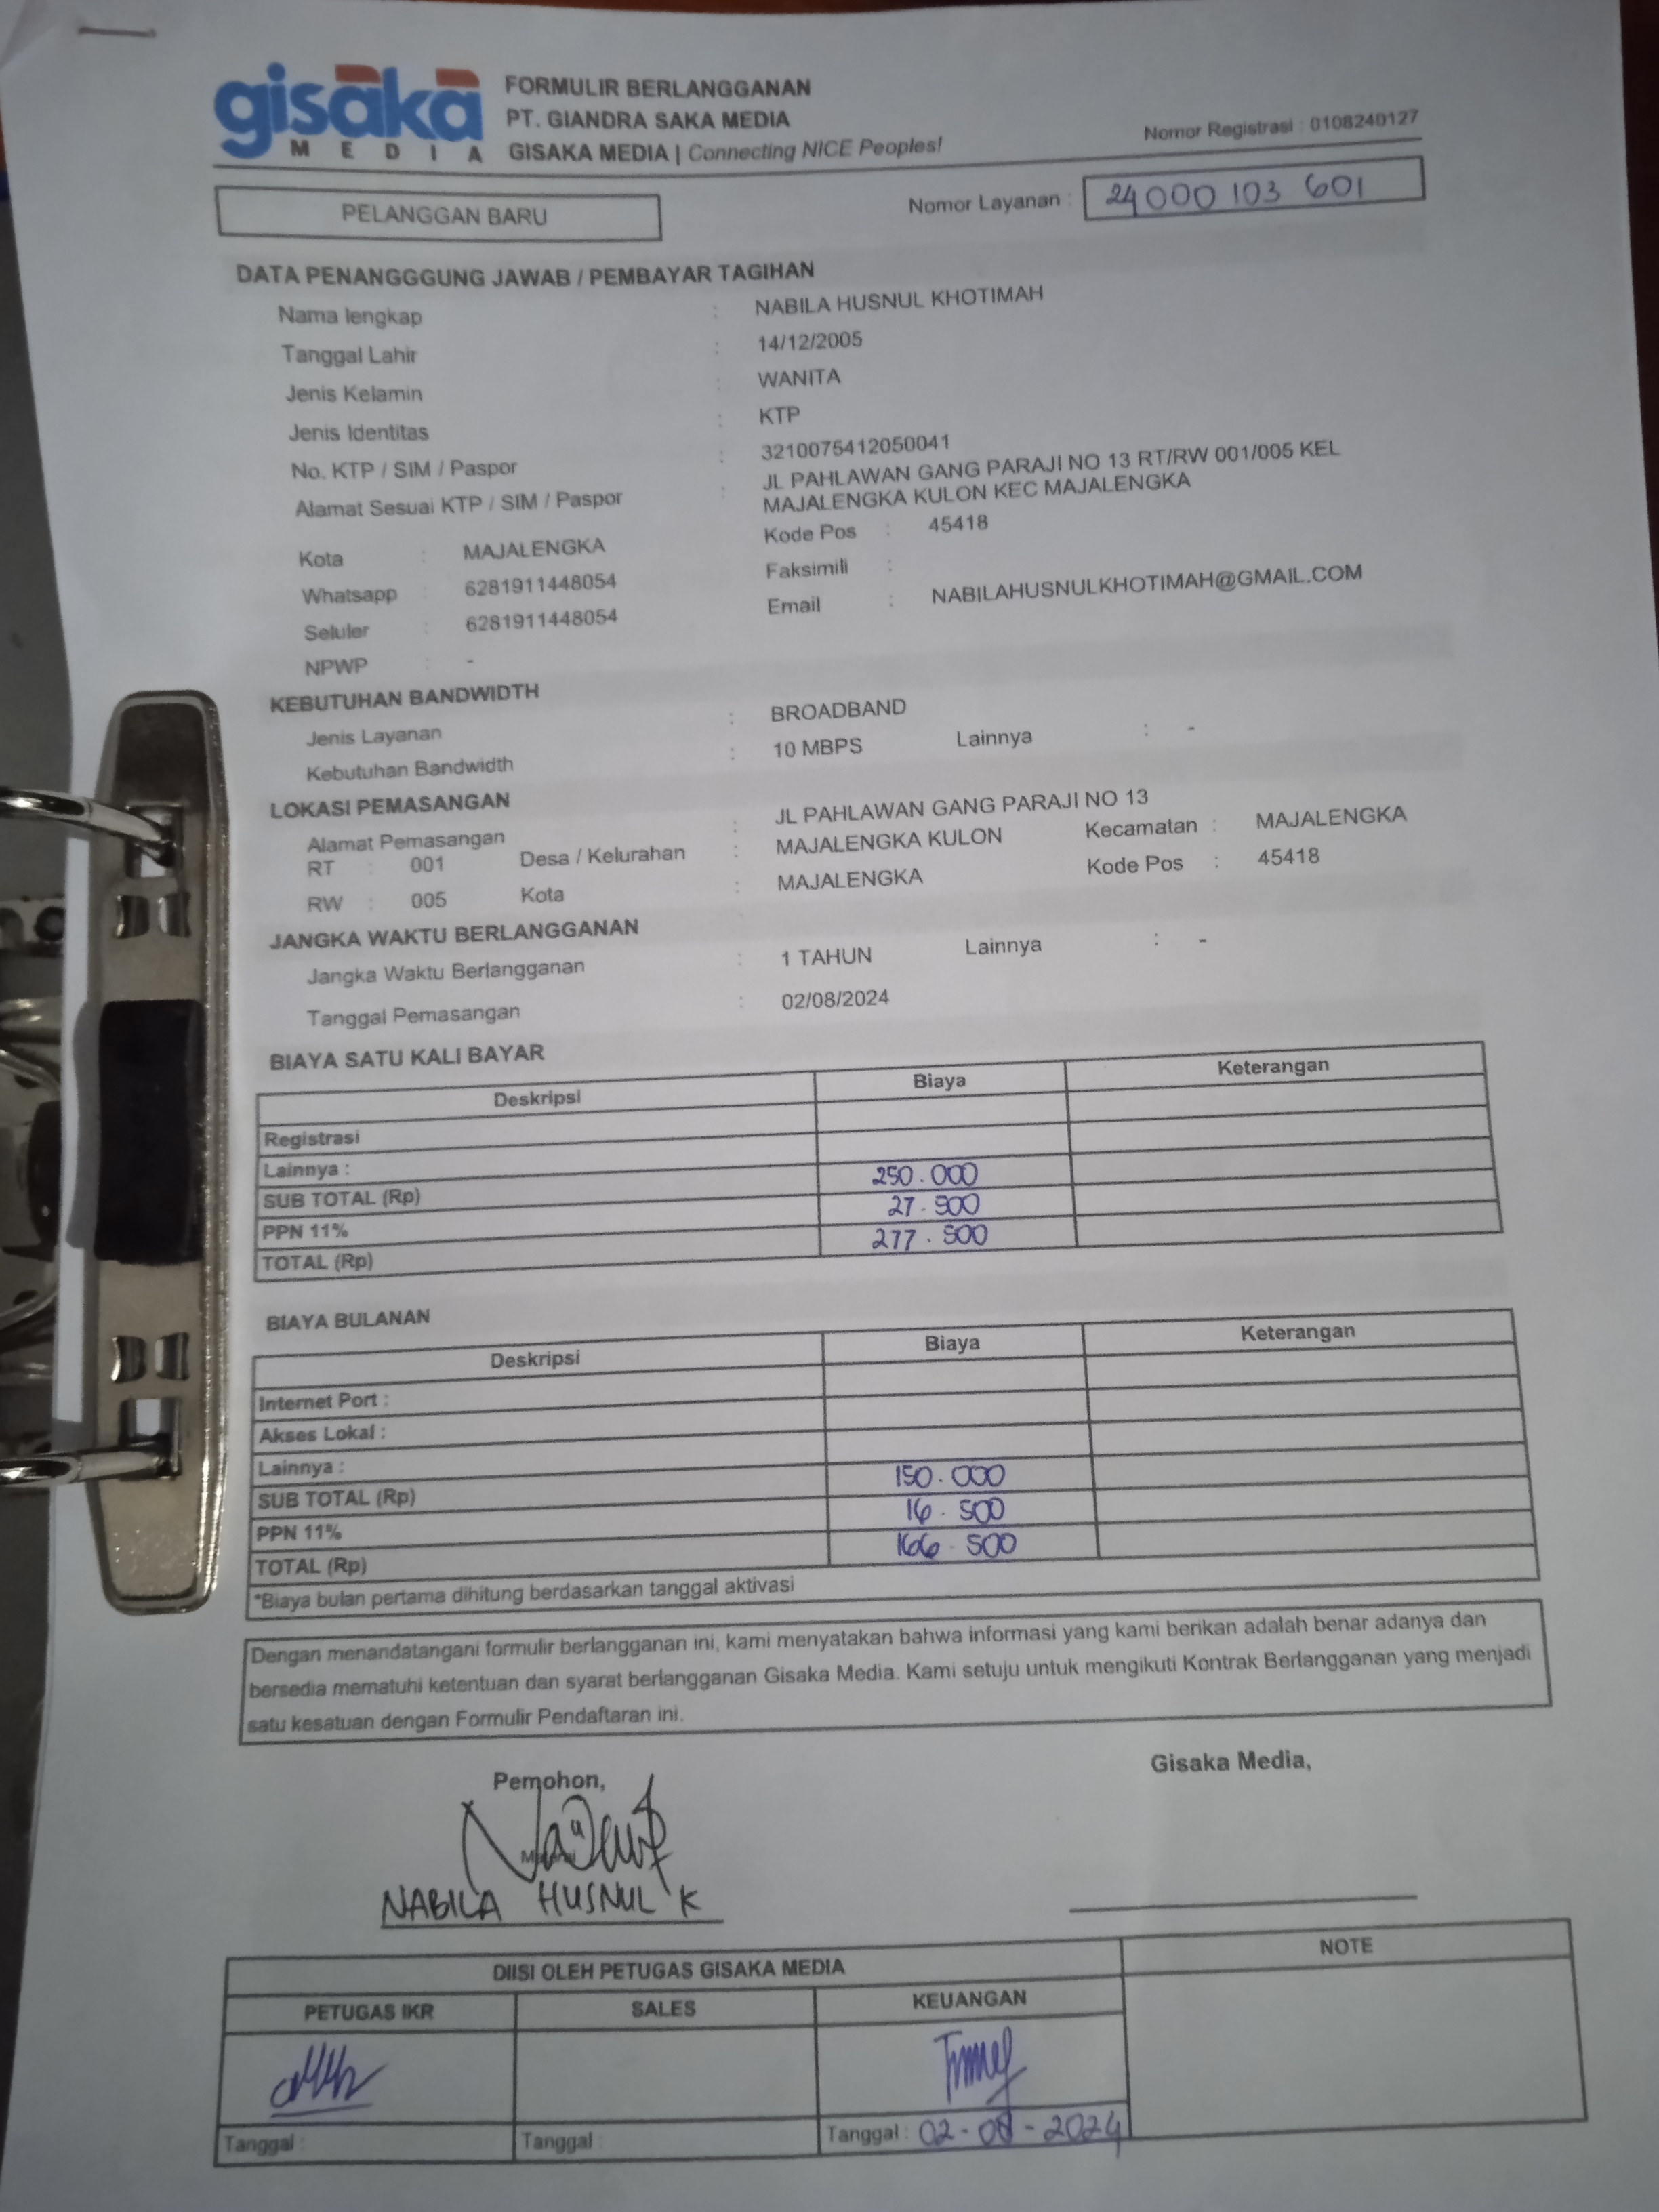 gisaka
MEDIA
FORMULIR BERLANGGANAN
PT. GIANDRA SAKA MEDIA
GISAKA MEDIA | Connecting NICE Peoples!
Nomor Registrasi : 0108240127
PELANGGAN BARU
Nomor Layanan : 24000 103 601
DATA PENANGGGUNG JAWAB / PEMBAYAR TAGIHAN
Nama lengkap : NABILA HUSNUL KHOTIMAH
Tanggal Lahir : 14/12/2005
Jenis Kelamin : WANITA
Jenis Identitas : KTP
No. KTP / SIM / Paspor : 3210075412050041
Alamat Sesuai KTP / SIM / Paspor : JL PAHLAWAN GANG PARAJI NO 13 RT/RW 001/005 KEL
MAJALENGKA KULON KEC MAJALENGKA
Kota : MAJALENGKA Kode Pos : 45418
Whatsapp : 6281911448054 Faksimili :
Seluler : 6281911448054 Email : NABILAHUSNULKHOTIMAH@GMAIL.COM
NPWP : -
KEBUTUHAN BANDWIDTH
Jenis Layanan : BROADBAND
Kebutuhan Bandwidth : 10 MBPS Lainnya : -
LOKASI PEMASANGAN
Alamat Pemasangan : JL PAHLAWAN GANG PARAJI NO 13
RT : 001 Desa / Kelurahan : MAJALENGKA KULON Kecamatan : MAJALENGKA
RW : 005 Kota : MAJALENGKA Kode Pos : 45418
JANGKA WAKTU BERLANGGANAN
Jangka Waktu Berlangganan : 1 TAHUN Lainnya : -
Tanggal Pemasangan : 02/08/2024
BIAYA SATU KALI BAYAR
Deskripsi Biaya Keterangan
Registrasi
Lainnya :
SUB TOTAL (Rp) 250.000
PPN 11% 27.500
TOTAL (Rp) 277.500
BIAYA BULANAN
Deskripsi Biaya Keterangan
Internet Port :
Akses Lokal :
Lainnya :
SUB TOTAL (Rp) 150.000
PPN 11% 16.500
TOTAL (Rp) 166.500
*Biaya bulan pertama dihitung berdasarkan tanggal aktivasi
Dengan menandatangani formulir berlangganan ini, kami menyatakan bahwa informasi yang kami berikan adalah benar adanya dan
bersedia mematuhi ketentuan dan syarat berlangganan Gisaka Media. Kami setuju untuk mengikuti Kontrak Berlangganan yang menjadi
satu kesatuan dengan Formulir Pendaftaran ini.
Pemohon, Gisaka Media,
NABILA HUSNUL K
DIISI OLEH PETUGAS GISAKA MEDIA NOTE
PETUGAS IKR SALES KEUANGAN
Tanggal : Tanggal : Tanggal : 02-08-2024